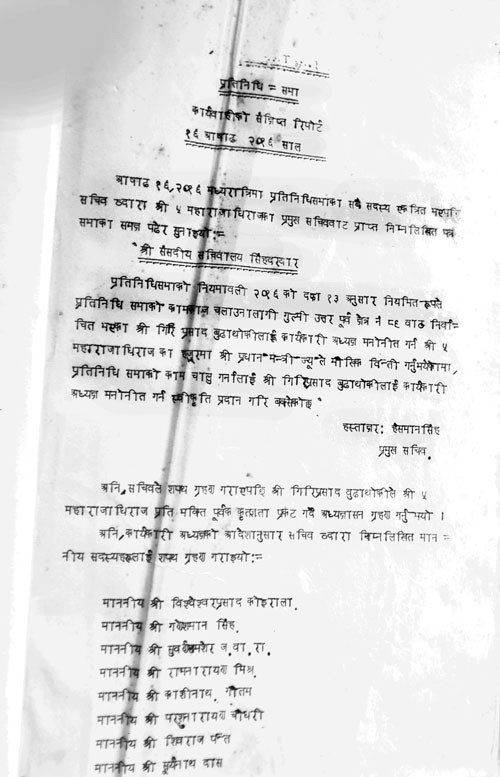 प्रतिनिधि = सभा
कार्यवाहीको संक्षिप्त रिपोर्ट
१६ आषाढ २०१६ साल
आषाढ १६, २०१६ मध्यरात्रिमा प्रतिनिधिसभाका सबै सदस्य एकत्रित भएपछि
सचिव व्दारा श्री ५ महाराजाधिराजका प्रमुख सचिववाट प्राप्त निम्नलिखित पत्र
सभाका समक्ष पढेर सुनाइयो:-
"श्री संसदीय सचिवालय सिंहदरवार
प्रतिनिधिसभाको नियमावली २०१६ को दफा १३ अनुसार नियमित रूपले
प्रतिनिधि सभाको कामकाज चलाउनालागी गुल्मी उत्तर पूर्व क्षेत्र नं ८६ वाट निर्वा-
चित भएका श्री गिरि प्रसाद बुढाथोकीलाई कार्यकारी अध्यक्ष मनोनीत गर्न श्री ५
महाराजाधिराज का हजुरमा श्री प्रधान मन्त्री ज्यूले मौखिक विन्ती गर्नुभयेकोमा,
प्रतिनिधि सभाको काम चालु गर्नलाई श्री गिरिप्रसाद बुढाथोकीलाई कार्यकारी
अध्यक्ष मनोनीत गर्न स्वीकृति प्रदान गरि वक्सेकोछ"
हस्ताक्षर: हंसमानसिंह
प्रमुख सचिव.
अनि, सचिवले शपथ ग्रहण गराएपछि श्री गिरिप्रसाद बुढाथोकीले श्री ५
महाराजाधिराज प्रति भक्ति पूर्वक कृतज्ञता प्रकट गर्दै अध्यक्षासन ग्रहण गर्नु भयो ।
अनि, कार्यकारी अध्यक्षको आदेशानुसार सचिव व्दारा निम्नलिखित मान -
नीय सदस्यहरूलाई शपथ ग्रहण गराइयो:-
माननीय श्री विश्वेश्वरप्रसाद कोइराला.
माननीय श्री गणेशमान सिंह.
माननीय श्री सुवर्णशमशेर ज. वा. रा.
माननीय श्री रामनारायण मिश्र.
माननीय श्री काशीनाथ. गौतम
माननीय श्री परशुनारायण चौधरी
माननीय श्री शिवराज पन्त
माननीय श्री सूर्यनाथ दास